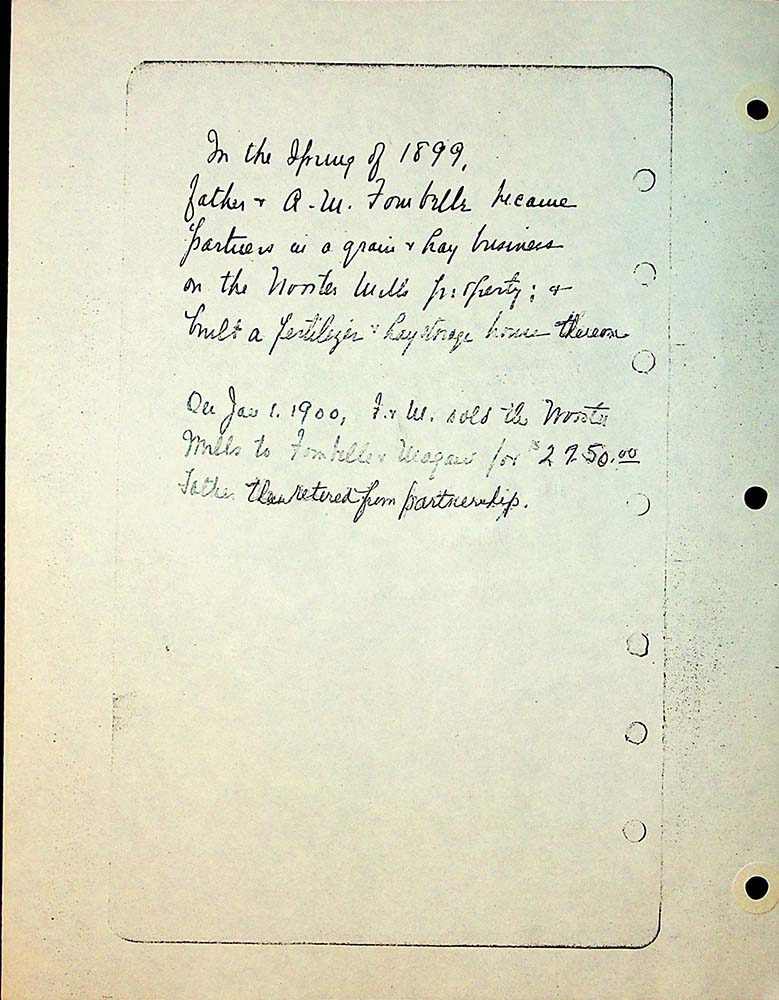 In the Spring of 1899,
father & A. M. Fombelle became
partners in a grain & hay business
on the Wooster Mills property; &
built a fertilizer & hay storage house thereon
On Jan 1. 1900, F. & M. sold the Wooster
Mills to Fombelle & Magaw for $2950.00
Father then retired from partnership.